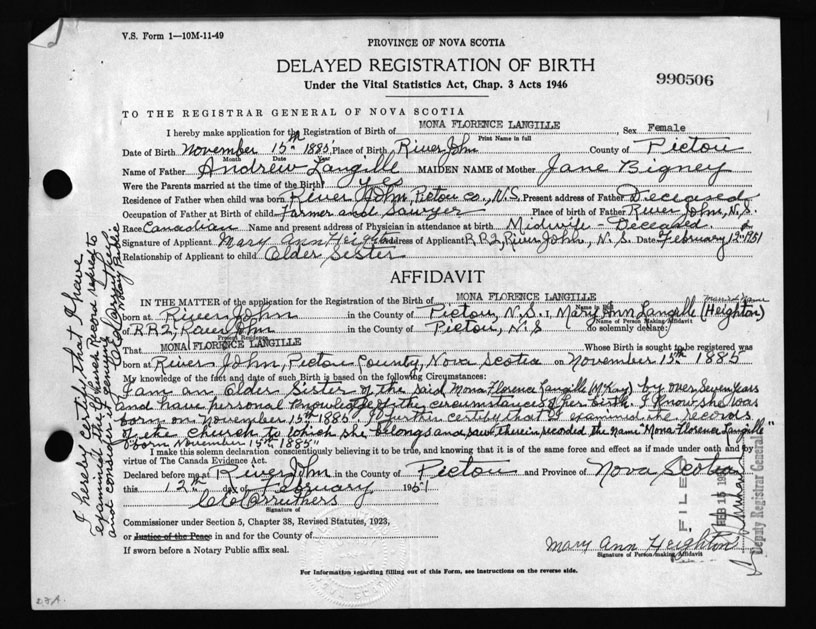 V.S. Form 1—10M-11-49
PROVINCE OF NOVA SCOTIA
DELAYED REGISTRATION OF BIRTH
Under the Vital Statistics Act, Chap. 3 Acts 1946
990506
TO THE REGISTRAR GENERAL OF NOVA SCOTIA
I hereby make application for the Registration of Birth of MONA FLORENCE LANGILLE, Sex Female
Print Name in full
Date of Birth November 15th 1885, Place of Birth River John County of Pictou
Month Date Year
Name of Father Andrew Langille MAIDEN NAME of Mother Jane Bigney
Were the Parents married at the time of the Birth? yes
Residence of Father when child was born River John Pictou Co., N.S. Present address of Father Deceased
Occupation of Father at Birth of child Farmer and Sawyer Place of birth of Father River John, N.S.
Race Canadian Name and present address of Physician in attendance at birth Midwife - Deceased.
Signature of Applicant Mary Ann Heighton Address of Applicant R.R.2, River John, N.S. Date February 12th 1951
Relationship of Applicant to child Older Sister
AFFIDAVIT
IN THE MATTER of the application for the Registration of the Birth of MONA FLORENCE LANGILLE
Name in full
Married Name
born at River John in the County of Pictou, N.S., I Mary Ann Langille (Heighton)
Name of Person Making Affidavit
of R.R.2, River John in the County of Pictou, N.S do solemnly declare:
Present Residence
That MONA FLORENCE LANGILLE Whose Birth is sought to be registered was
born at River John, Pictou County, Nova Scotia on November 15th 1885
My knowledge of the fact and date of such Birth is based on the following Circumstances:
I am an Older Sister of the said Mona Florence Langille (McKay) by over Seven Years
and have personal knowledge of the circumstances of her birth. I know she was
born on November 15th 1885. I further certify that I examined the records
of the church to which she belongs and saw therein recorded the name "Mona Florence Langille"
"born November 15th 1885"
I make this solemn declaration conscientiously believing it to be true, and knowing that it is of the same force and effect as if made under oath and by
virtue of The Canada Evidence Act.
Declared before me at River John in the County of Pictou and Province of Nova Scotia
this 12th day of February 1951
Carruthers
Signature of
Commissioner under Section 5, Chapter 38, Revised Statutes, 1923,
or Justice of the Peace in and for the County of
If sworn before a Notary Public affix seal.
Mary Ann Heighton
Signature of Person making Affidavit
For Information regarding filling out of this Form, see instructions on the reverse side.
I hereby certify that I have
examined the Church Record referred to
and consider it genuine
Notary Public
FILED
FEB 15
Deputy Registrar General